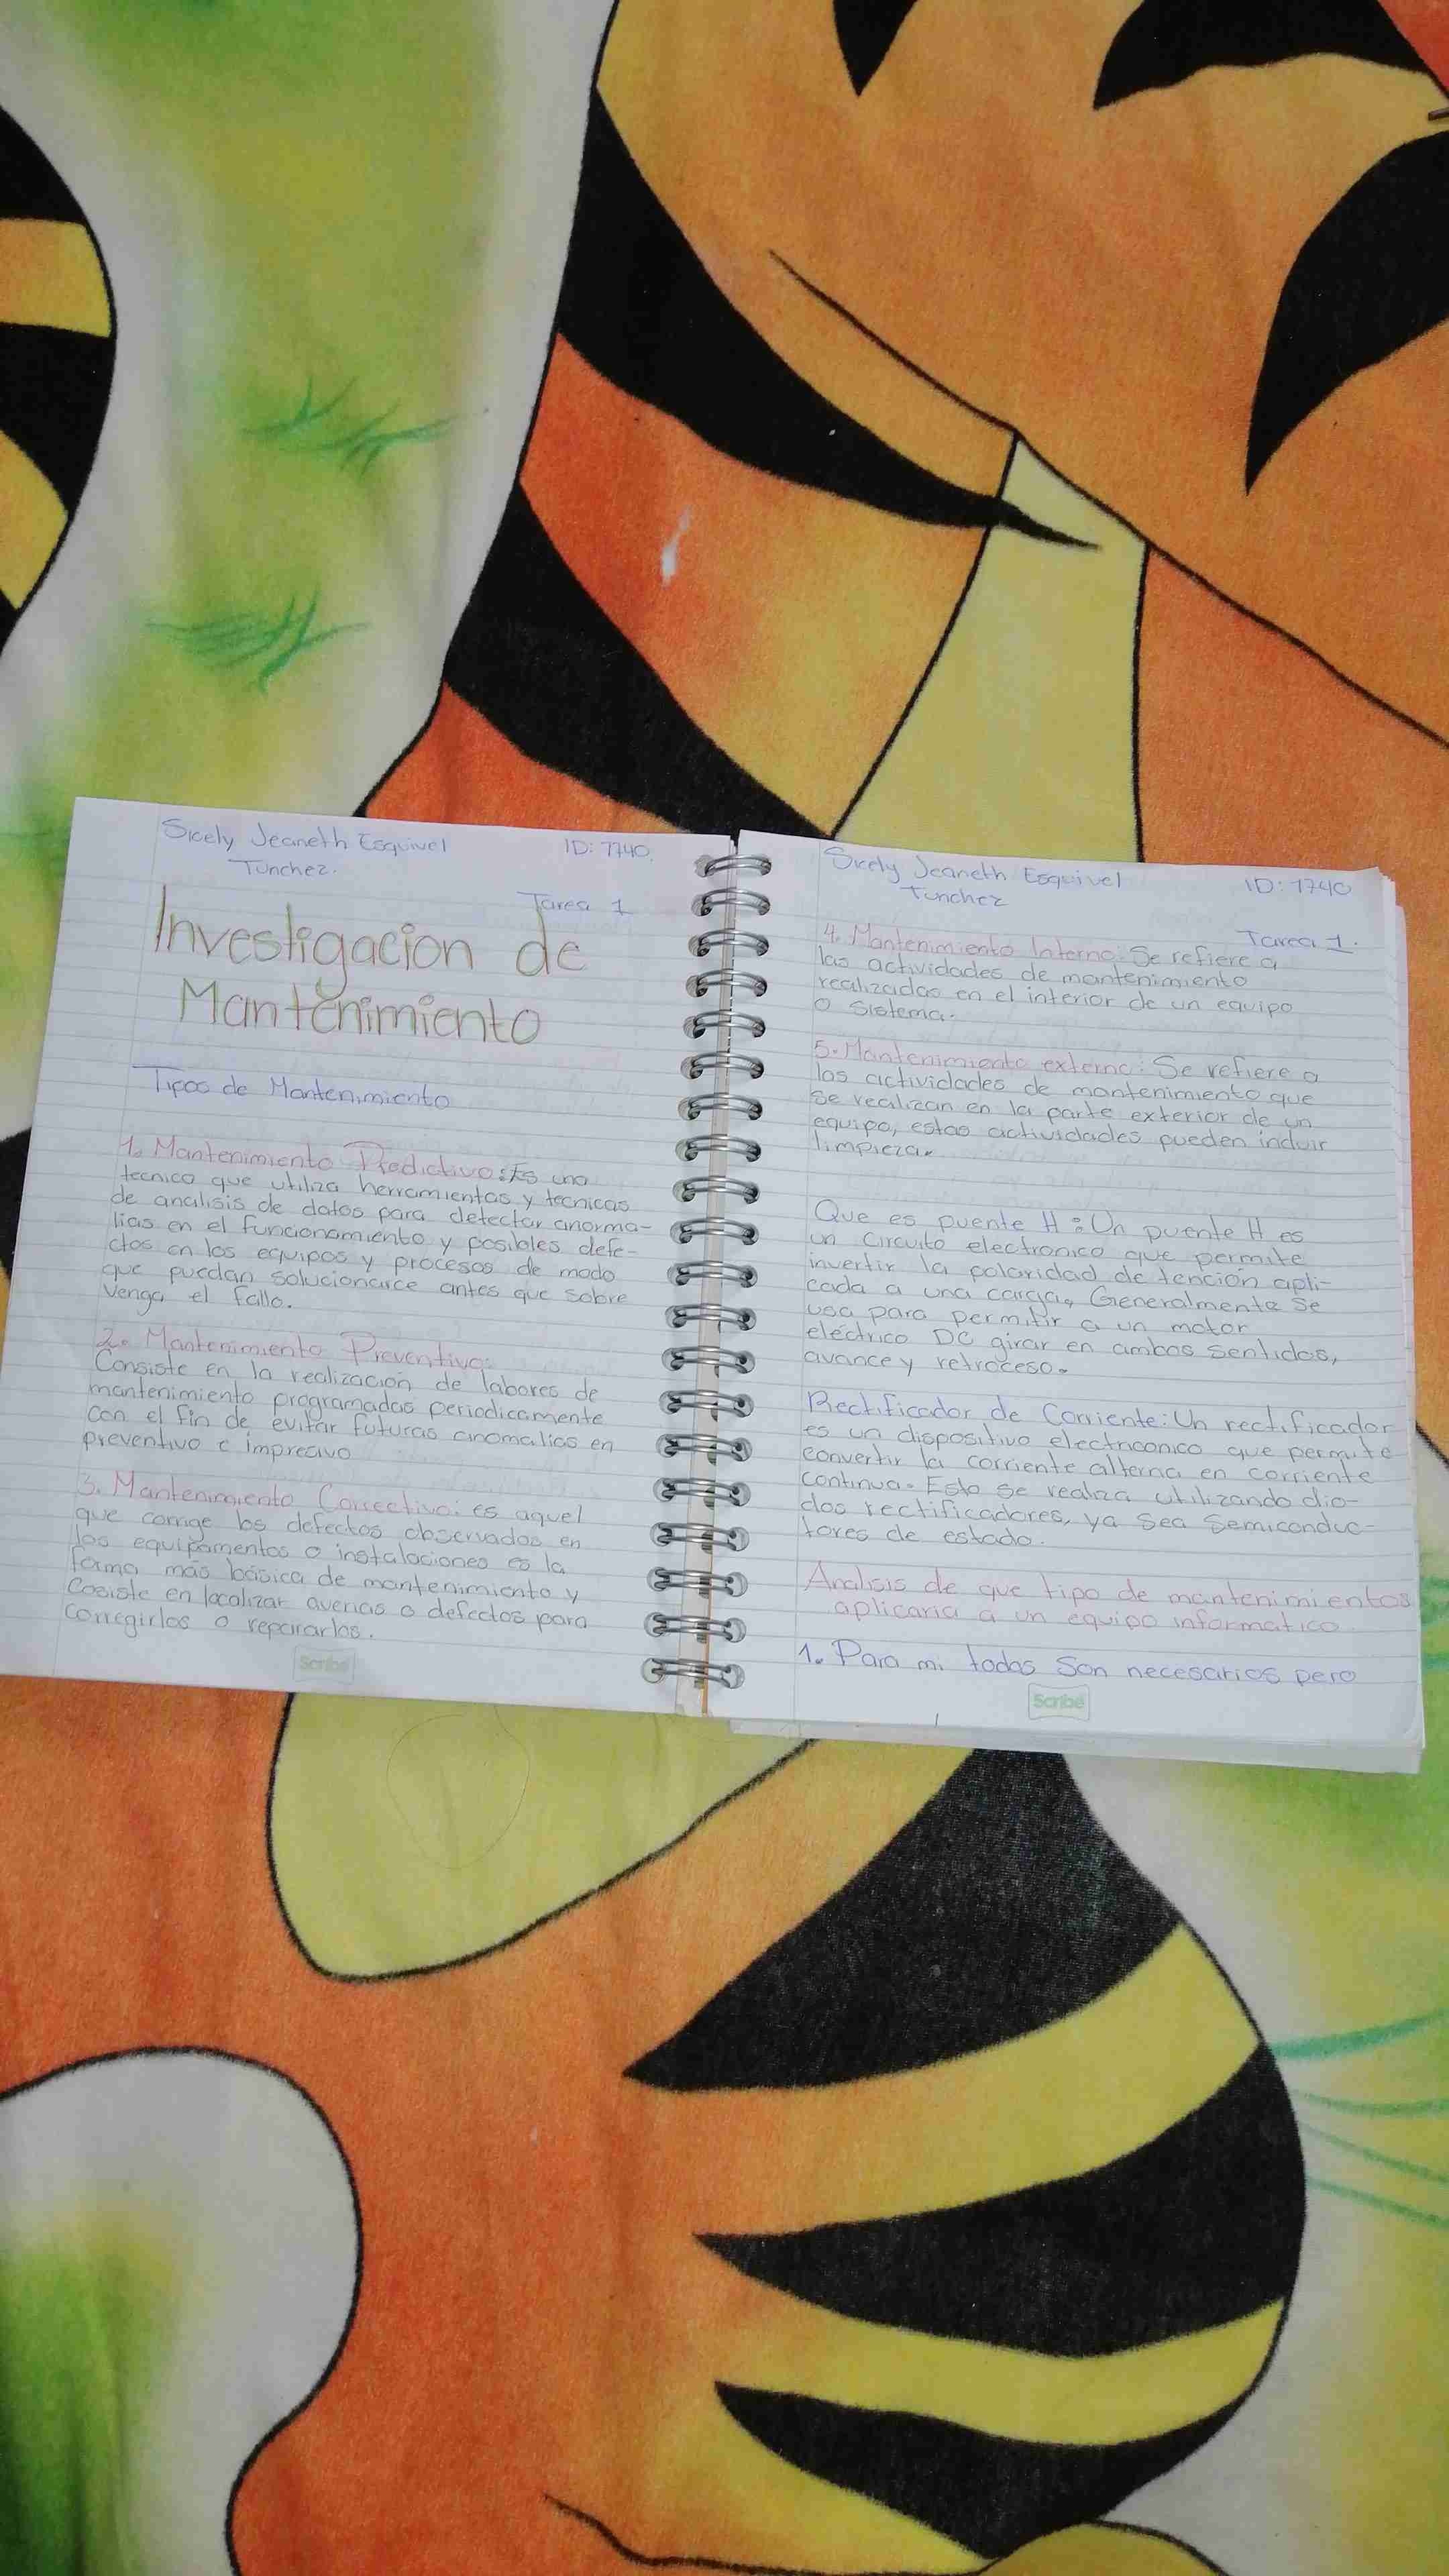 Sicely Jeaneth Esquivel
Tunchez.
ID: 7740.
Tarea 1
Investigacion de
Mantenimiento
Tipos de Mantenimiento
1. Mantenimiento Predictivo: Es una
tecnica que utiliza herramientas y tecnicas
de analisis de datos para detectar anorma-
lias en el funcionamiento y posibles defe-
ctos en los equipos y procesos de modo
que puedan solucionarce antes que sobre
venga el fallo.
2. Mantenimiento Preventivo:
Consiste en la realización de labores de
mantenimiento programadas periodicamente
con el fin de evitar futuras anomalias en
preventivo e impresivo
3. Mantenimiento Correctivo: es aquel
que corrige los defectos observados en
los equipamentos o instalaciones es la
forma más básica de mantenimiento y
Cosiste en localizar averias o defectos para
corregirlos o repararlos.
Scribe
Sicely Jeaneth Esquivel
Tunchez
ID: 7740
Tarea 1.
4. Mantenimiento Interno: Se refiere a
las actividades de mantenimiento
realizadas en el interior de un equipo
o sistema.
5. Mantenimiento externo: Se refiere a
las actividades de mantenimiento que
se realizan en la parte exterior de un
equipo, estas actividades pueden incluir
limpieza.
Que es puente H: Un puente H es
un circuito electronico que permite
invertir la polaridad de tención apli-
cada a una carga. Generalmente se
usa para permitir a un motor
eléctrico DC girar en ambos sentidos,
avance y retroceso.
Rectificador de Corriente: Un rectificador
es un dispositivo electriconico que permite
convertir la corriente alterna en corriente
continua. Esto se realiza utilizando dio-
dos rectificadores, ya sea semiconduc-
tores de estado.
Analisis de que tipo de mantenimientos
aplicaria a un equipo informatico.
1. Para mi todos son necesarios pero
Scribe